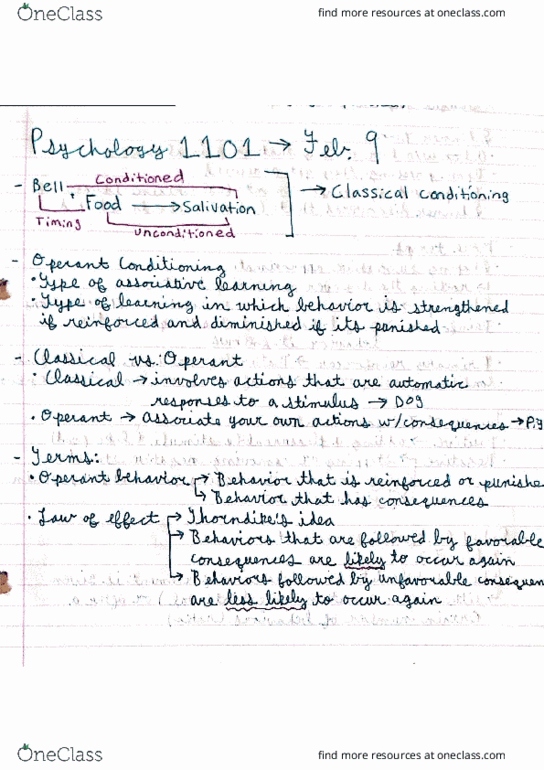 OneClass find more resources at oneclass.com
Psychology 1101 → Feb. 9
Conditioned
- Bell
Food → Salivation → Classical conditioning
Timing
Unconditioned
- Operant Conditioning
• Type of associative learning
• Type of learning in which behavior is strengthened
if reinforced and diminished if its punished
- Classical vs. Operant
• Classical → involves actions that are automatic
responses to a stimulus → Dog
• Operant → associate your own actions w/consequences →
- Terms:
• Operant behavior → Behavior that is reinforced or punishe
↳ Behavior that has consequences
• Law of effect → Thorndike's idea
→ Behaviors that are followed by favorable
consequences are likely to occur again
→ Behaviors followed by unfavorable consequen
are less likely to occur again
OneClass find more resources at oneclass.com